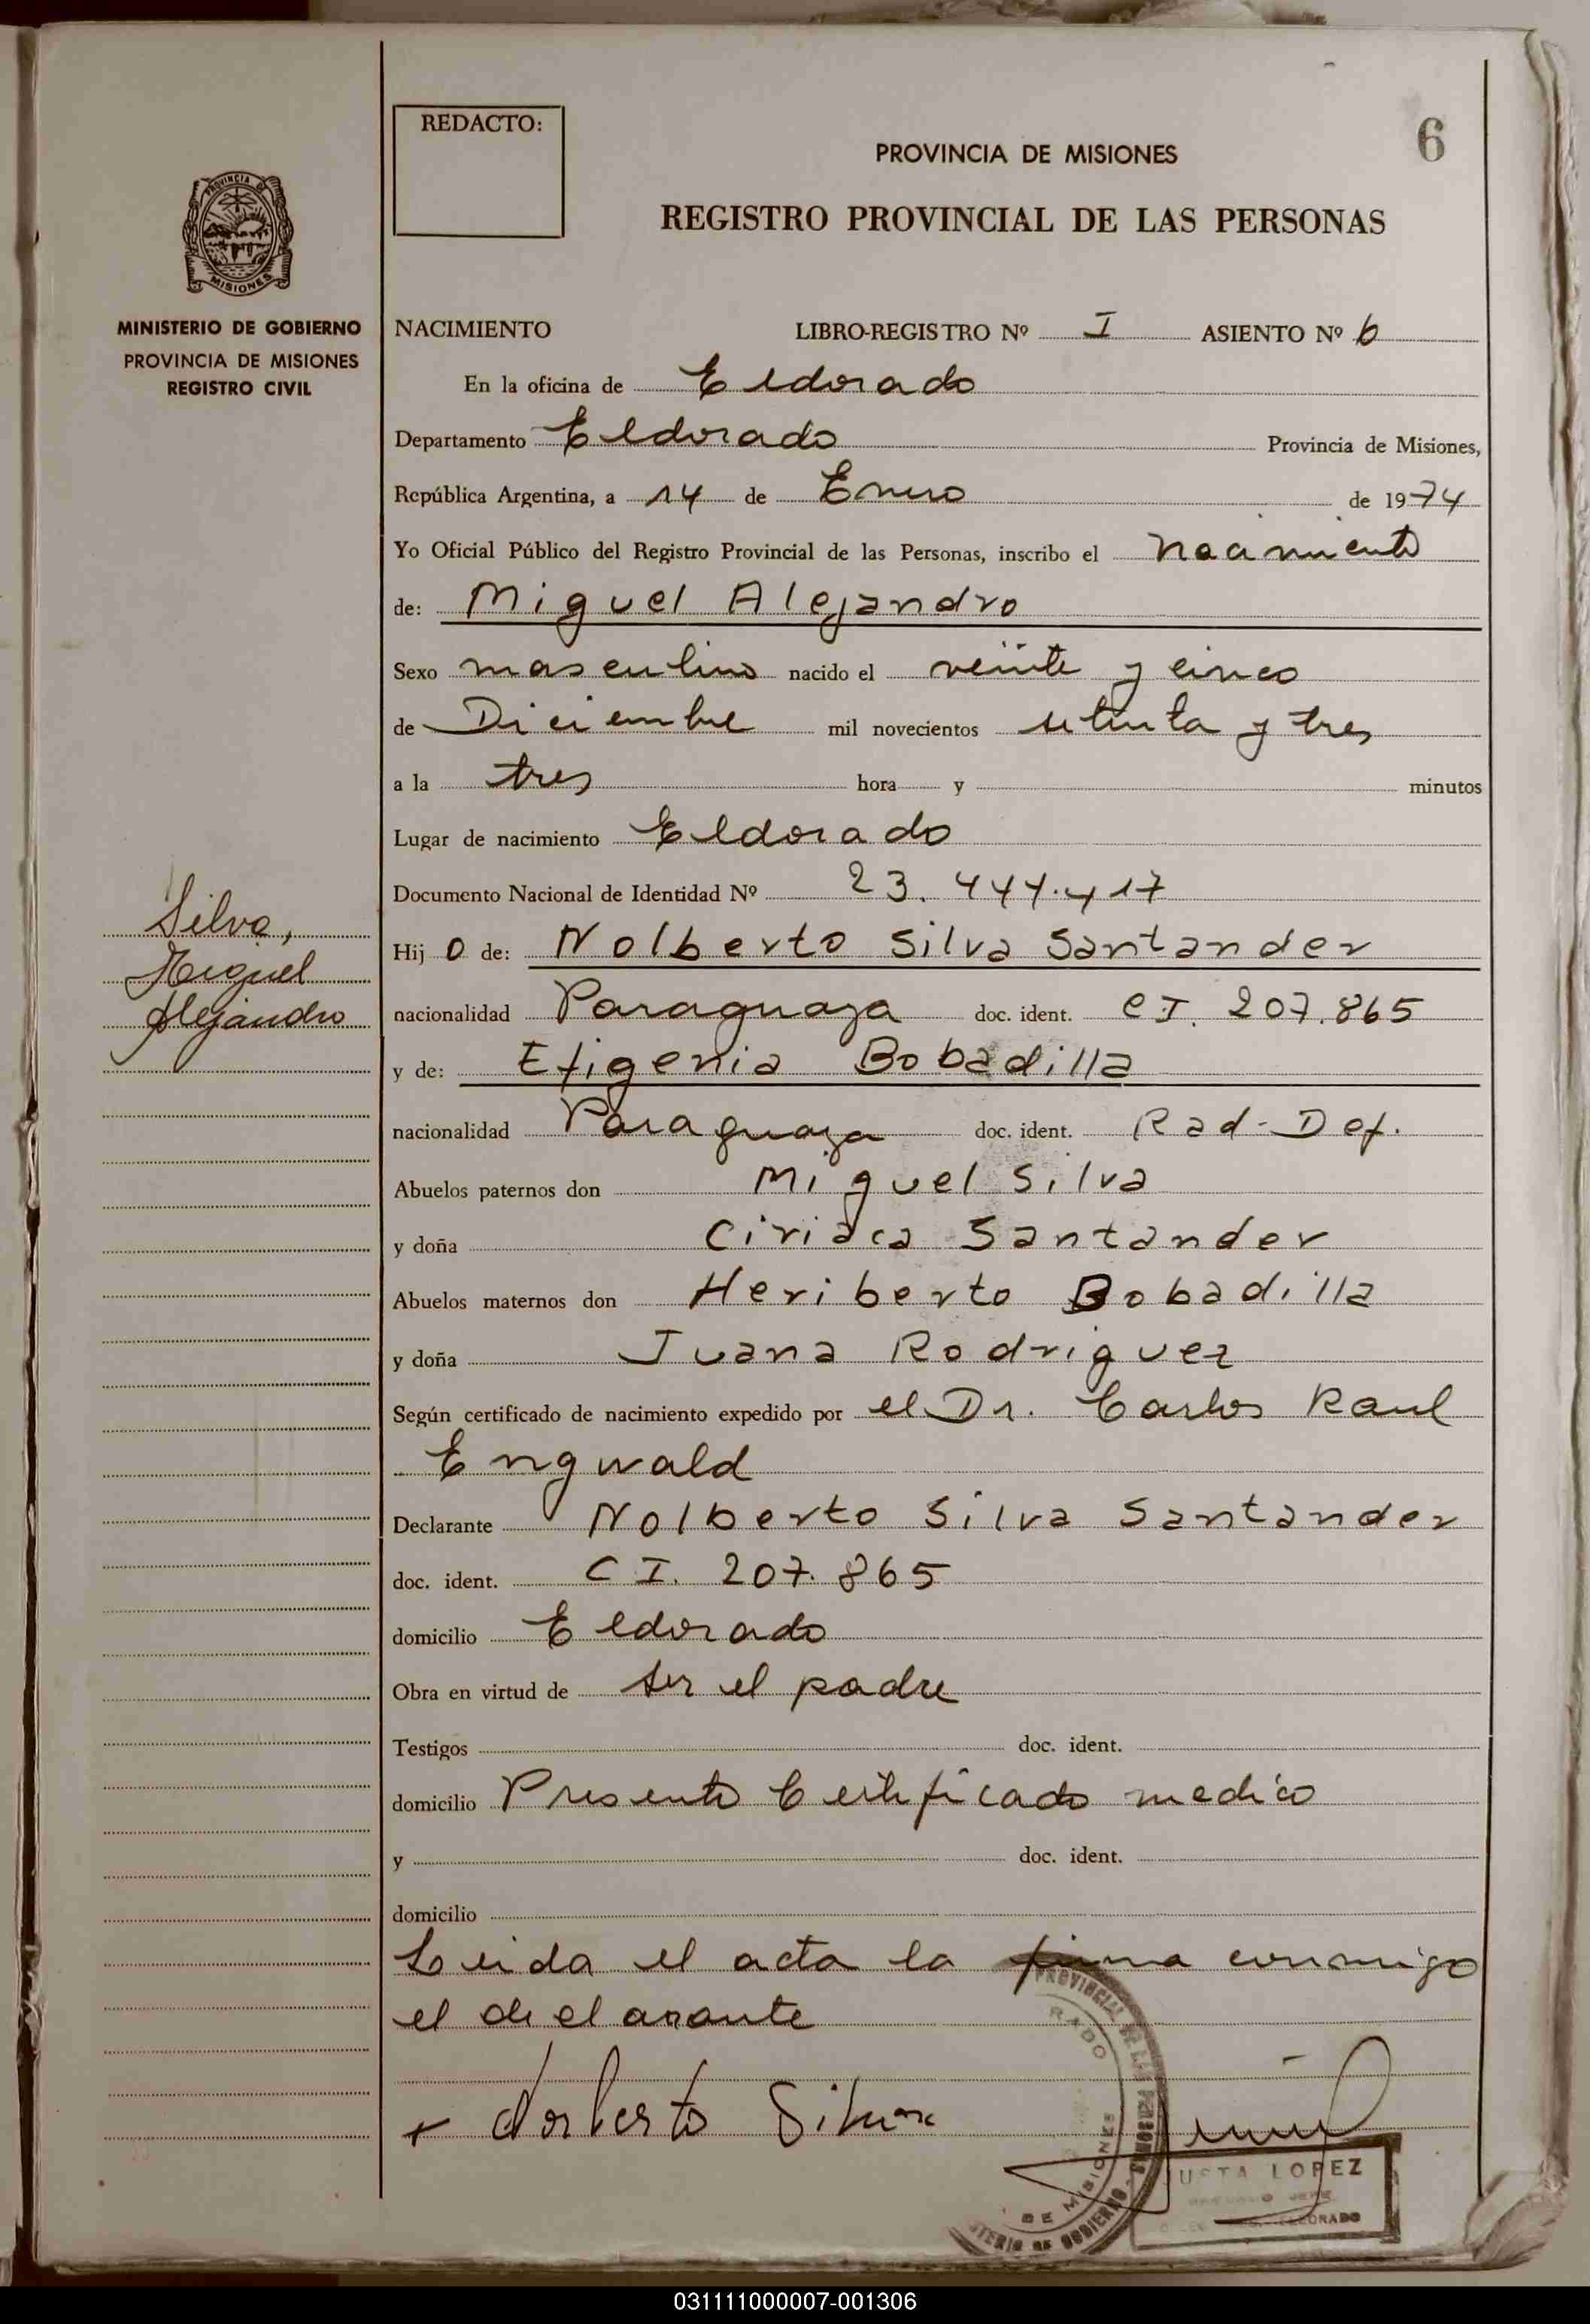 REDACTO:
6
PROVINCIA DE MISIONES
REGISTRO PROVINCIAL DE LAS PERSONAS
PROVINCIA DE
MISIONES
MINISTERIO DE GOBIERNO
PROVINCIA DE MISIONES
REGISTRO CIVIL
Silva,
Miguel
Alejandro
NACIMIENTO LIBRO-REGISTRO Nº I ASIENTO Nº 6
En la oficina de Eldorado
Departamento Eldorado Provincia de Misiones,
República Argentina, a 14 de Enero de 1974
Yo Oficial Público del Registro Provincial de las Personas, inscribo el nacimiento
de: Miguel Alejandro
Sexo masculino nacido el veinte y cinco
de Diciembre mil novecientos setenta y tres
a la tres hora y minutos
Lugar de nacimiento Eldorado
Documento Nacional de Identidad Nº 23.444.417
Hij o de: Nolberto Silva Santander
nacionalidad Paraguaya doc. ident. CI. 207.865
y de: Efigenia Bobadilla
nacionalidad Paraguaya doc. ident. Rad-Def.
Abuelos paternos don Miguel Silva
y doña Ciriaca Santander
Abuelos maternos don Heriberto Bobadilla
y doña Juana Rodriguez
Según certificado de nacimiento expedido por el Dr. Carlos Raul
Engwald
Declarante Nolberto Silva Santander
doc. ident. CI. 207.865
domicilio Eldorado
Obra en virtud de ser el padre
Testigos doc. ident.
domicilio Presento Certificado medico
y doc. ident.
domicilio
Leida el acta la firma conmigo
el declarante
+ Norberto Silva
PROVINCIAL DE LAS PERSONAS
DE MISIONES
DE GOBIERNO
LOPEZ
ELDORADO
031111000007-001306